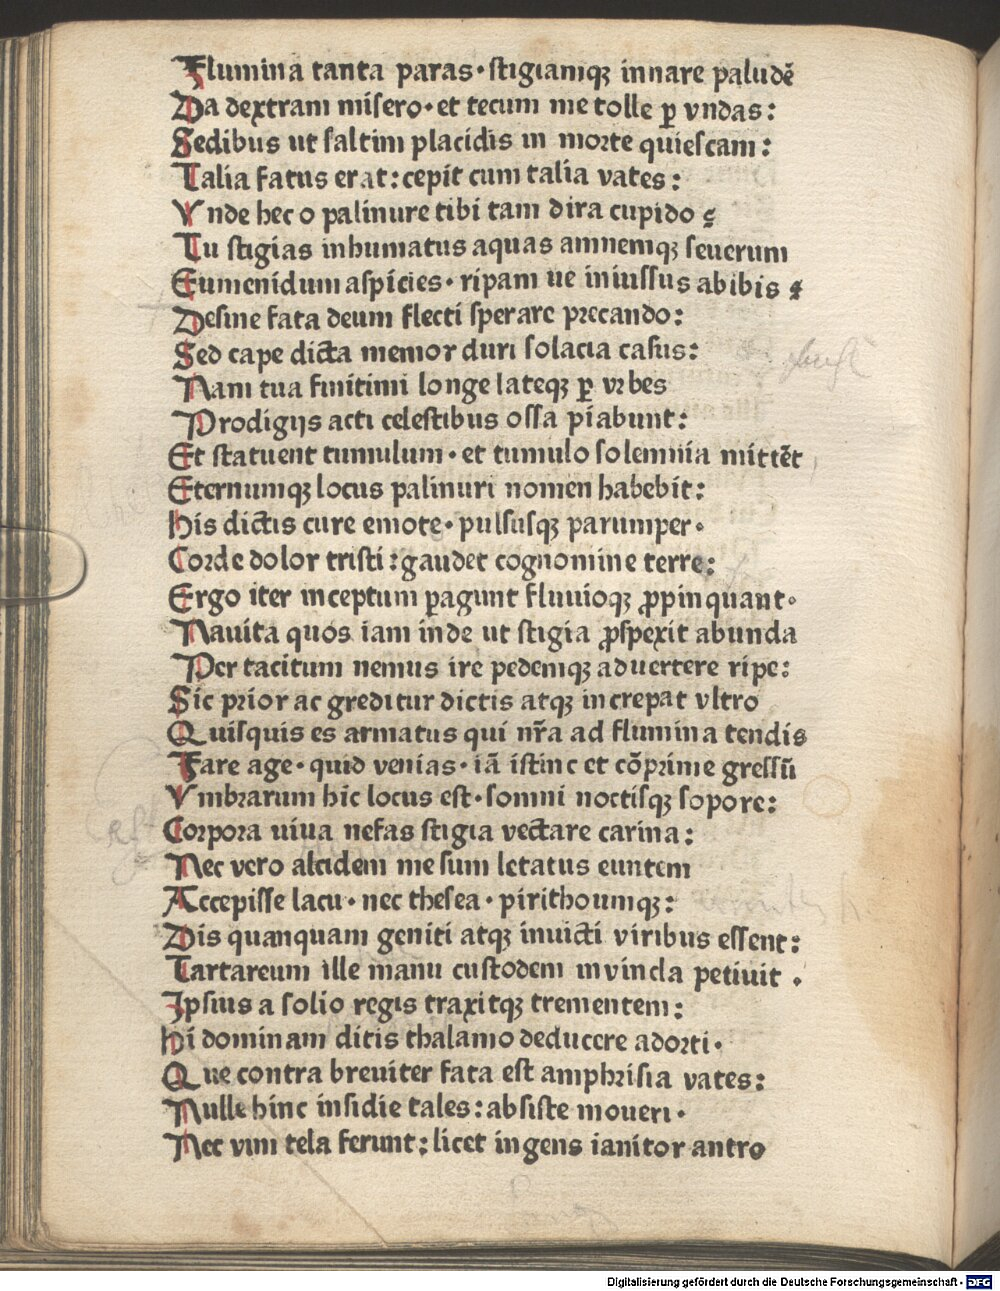 Flumina tanta paras·stigiamqꝫ innare paludē
Da dextram misero·et tecum me tolle ꝑ vndas:
Sedibus ut saltim placidis in morte quiescam:
Talia fatus erat:cepit cum talia vates:
Vnde hec o palinure tibi tam dira cupido ?
Tu stigias inhumatus aquas amnemqꝫ seuerum
Eumenidum aspicies·ripam ue iniussus abibis ?
Desine fata deum flecti sperare precando:
Sed cape dicta memor duri solacia casus:
Nam tua finitimi longe lateqꝫ ꝑ vrbes
Prodigijs acti celestibus ossa piabunt:
Et statuent tumulum·et tumulo solemnia mittēt
Eternumqꝫ locus palinuri nomen habebit:
his dictis cure emote·pulsusqꝫ parumper·
Corde dolor tristi:gaudet cognomine terre:
Ergo iter inceptum ꝑagunt fluuioqꝫ ꝓpinquant·
Nauita quos iam inde ut stigia ꝓspexit abunda
Per tacitum nemus ire pedemqꝫ aduertere ripe:
Sic prior ac greditur dictis atqꝫ increpat vltro
Quisquis es armatus qui nr̄a ad flumina tendis
Fare age·quid venias·iā istinc et cōprime gressū
Vmbrarum hic locus est·somni noctisqꝫ sopore:
Corpora uiua nefas stigia vectare carina:
Nec vero alcidem me sum letatus euntem
Accepisse lacu·nec thesea·pirithoumqꝫ:
Dis quanquam geniti atqꝫ inuicti viribus essent:
Tartareum ille manu custodem invincla petiuit ·
Ipsius a solio regis traxitqꝫ trementem:
hi dominam ditis thalamo deducere adorti·
Que contra breuiter fata est amphrisia vates:
Nulle hinc insidie tales:absiste moueri·
Nec vim tela ferunt:licet ingens ianitor antro
Digitalisierung gefördert durch die Deutsche Forschungsgemeinschaft - DFG